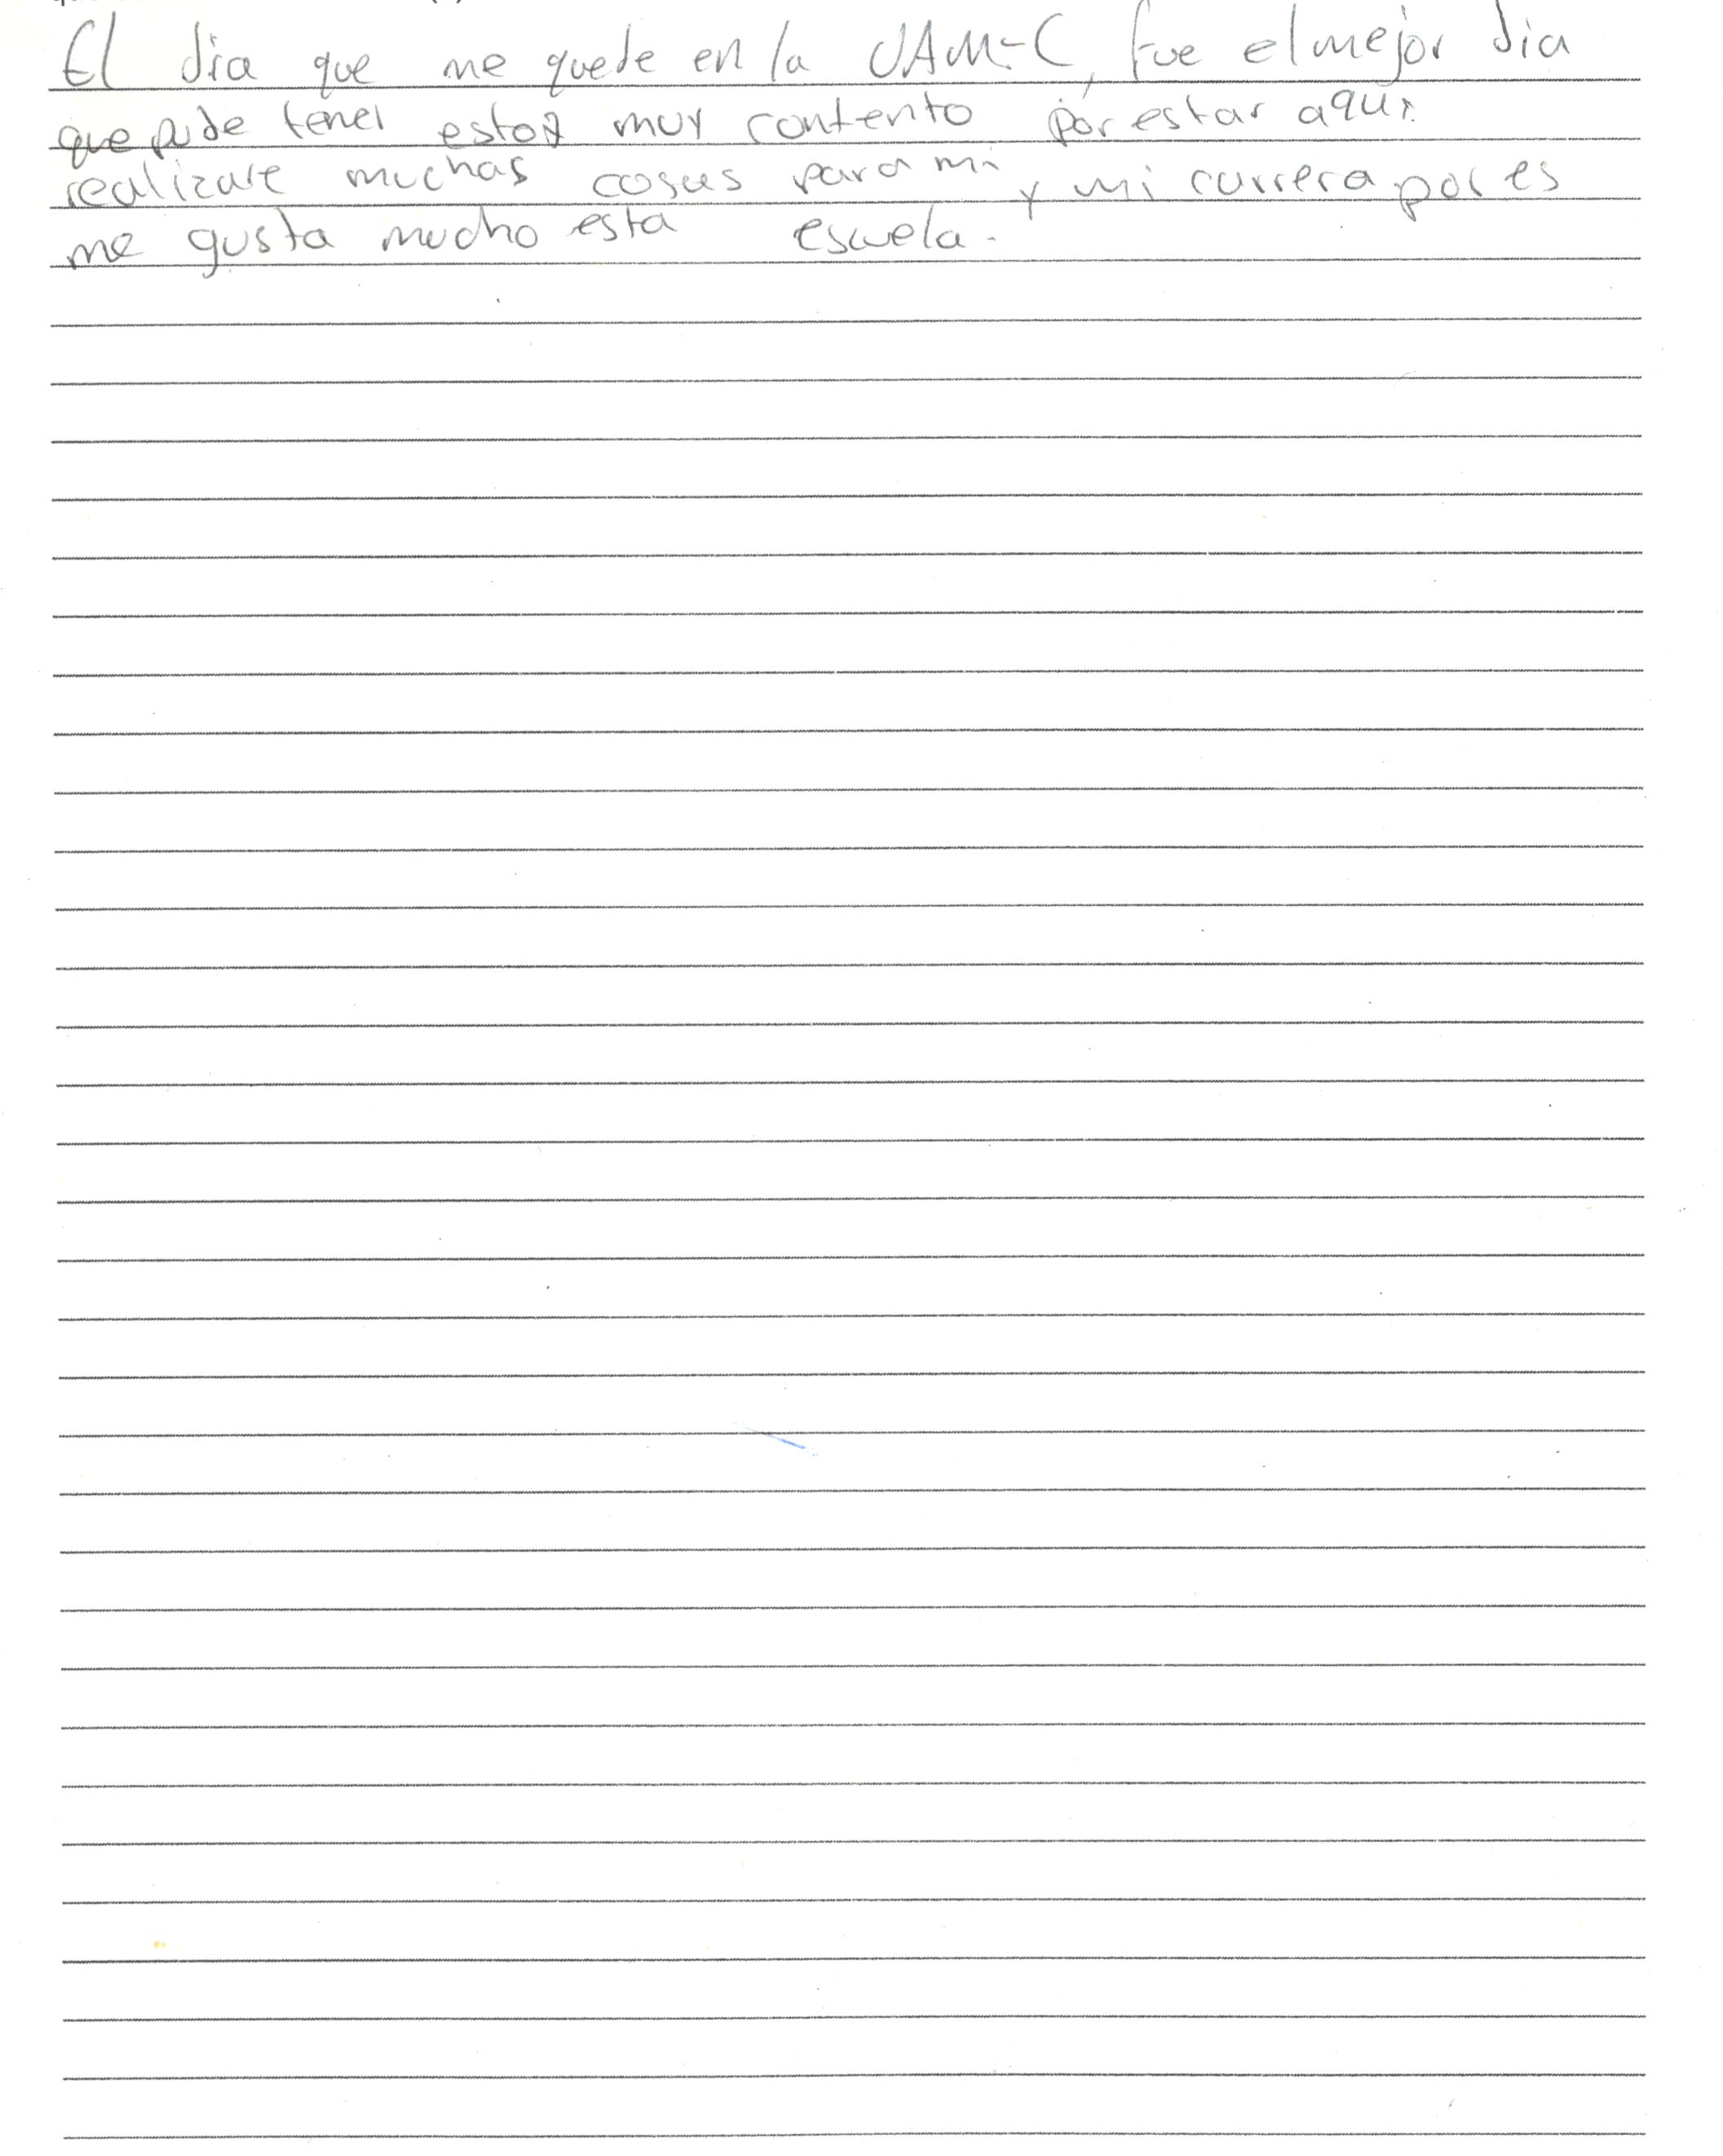 El dia que me quede en la UAM-C, fue el mejor dia
que pude tener estoy muy contento por estar aqui.
realizare muchas cosas para mi y mi carrera por es
me gusta mucho esta escuela.